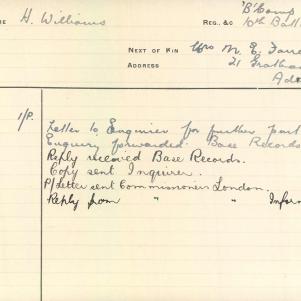 ME H. Williams REG., &C 'B' Comp
10th Batt
NEXT OF KIN Mrs M. E.
ADDRESS 21
Ad
1/P. Letter to Enquirer for further part
Enquiry forwarded Base Records
Reply received Base Records.
Copy sent Inquirer.
P/Letter sent Commissioners London.
Reply from " " Inform